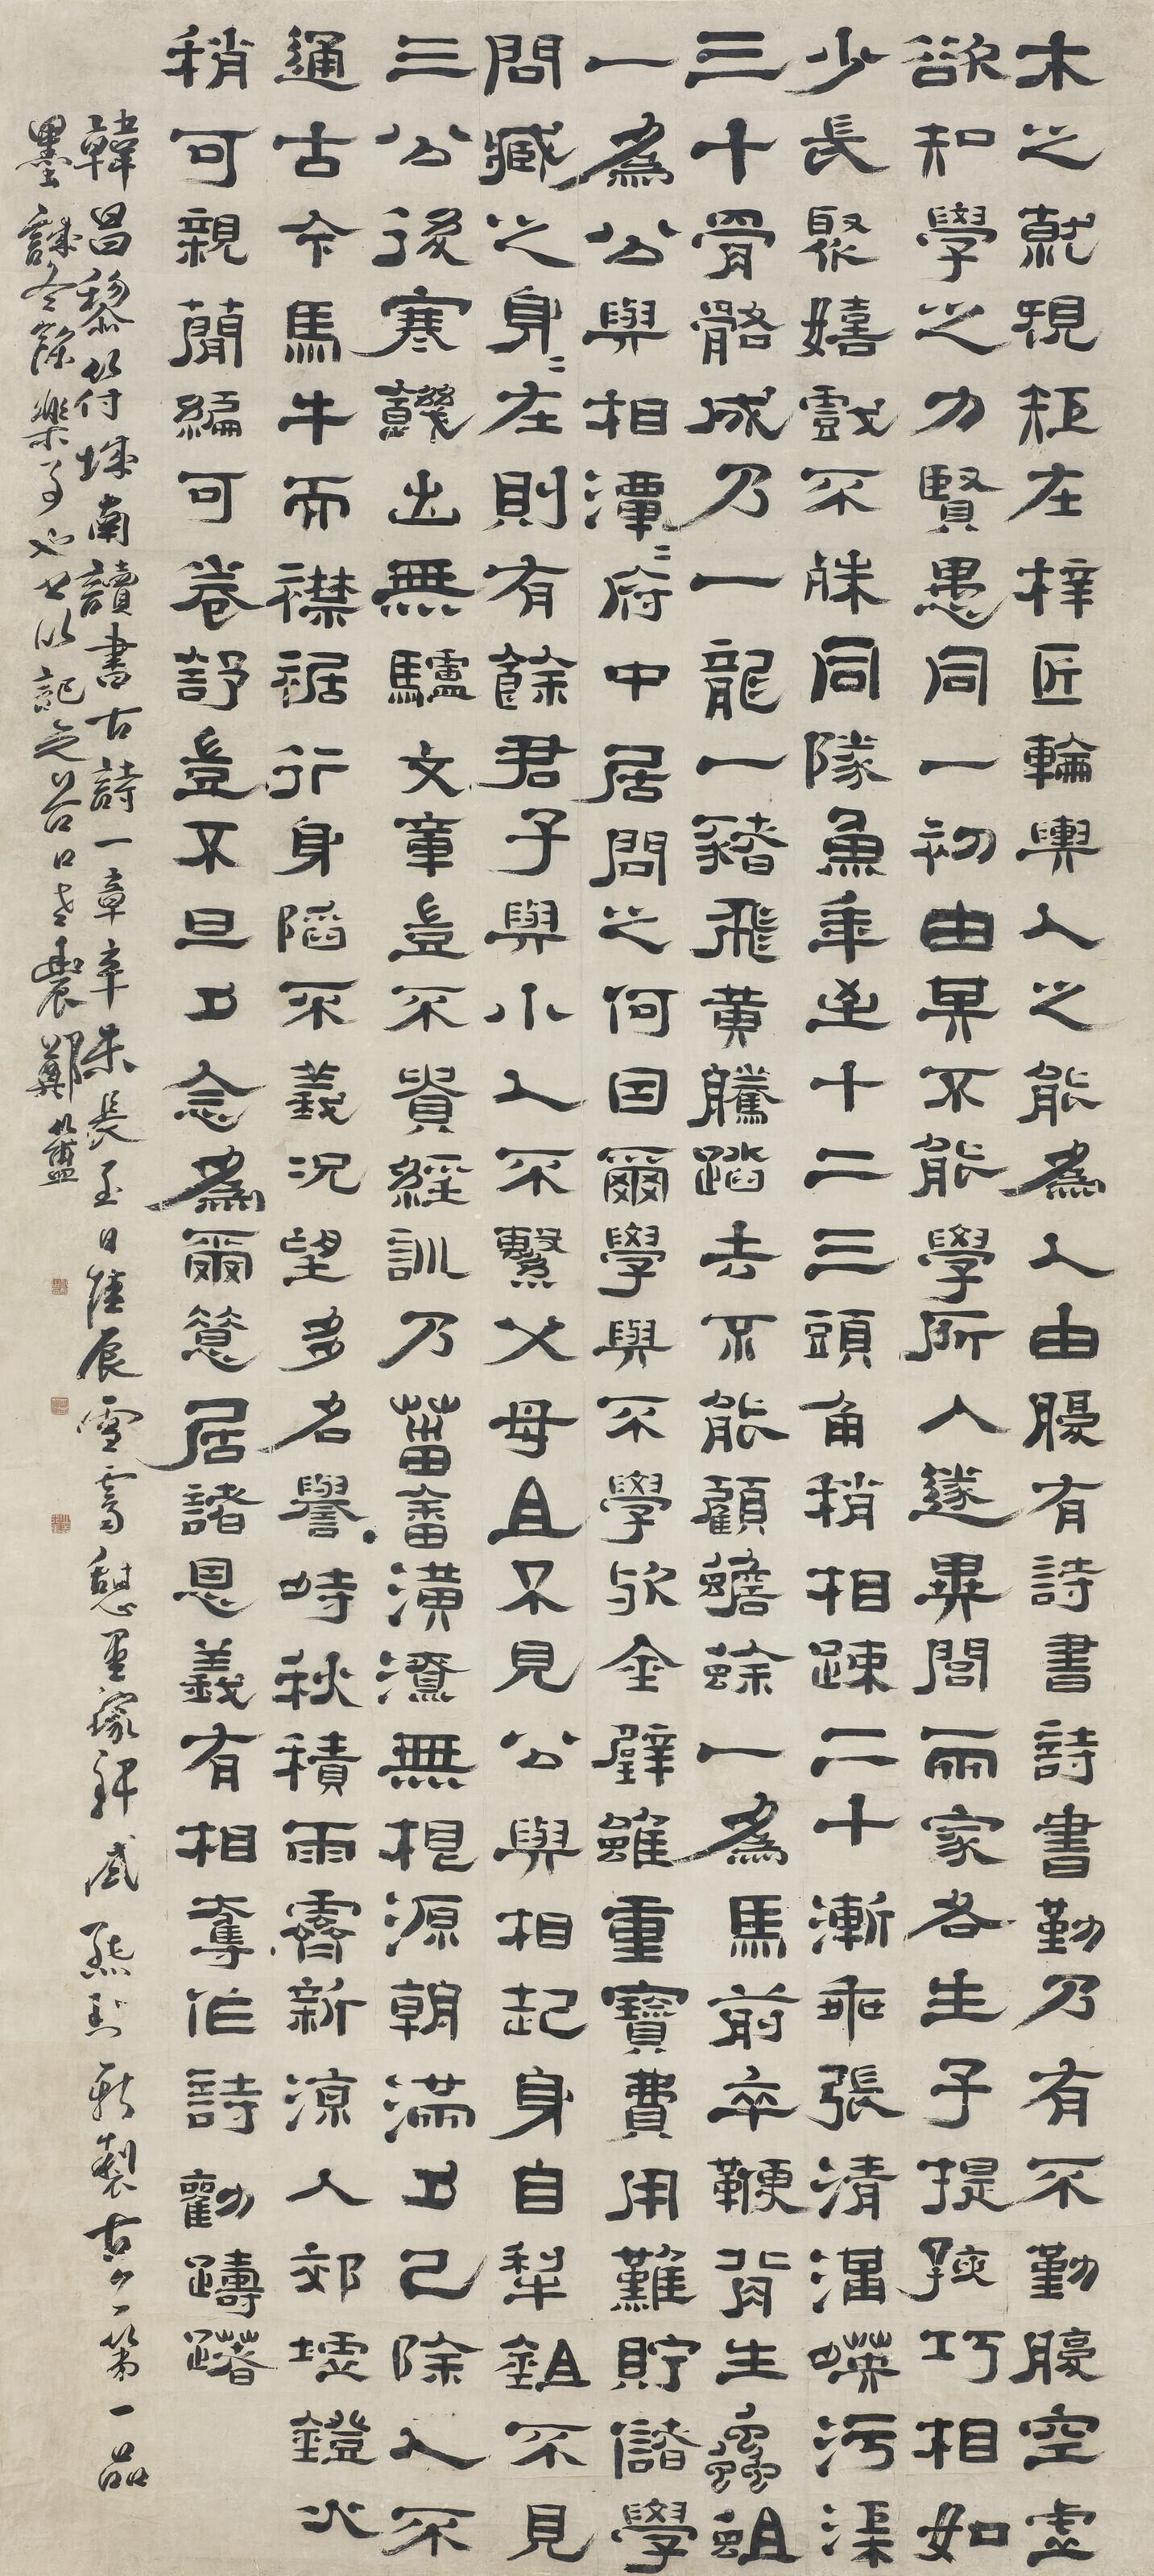 木之就規矩在梓匠輪輿人之能為人由腹有詩書詩書勤乃有不勤腹空虛
欲知學之力賢愚同一初由其不能學所入遂異閭兩家各生子提孩巧相如
少長聚嬉戲不殊同隊魚年至十二三頭角稍相疎二十漸乖張清溝映污渠
三十骨骼成乃一龍一豬飛黃騰踏去不能顧蟾蜍一為馬前卒鞭背生蟲蛆
一為公與相潭〻府中居問之何因爾學與不學歟金璧雖重寶費用難貯儲學
問藏之身〻在則有餘君子與小人不繫父母且不見公與相起身自犁鉏不見
三公後寒饑出無驢文章豈不貴經訓乃菑畬潢潦無根源朝滿夕已除人不
通古今馬牛而襟裾行身陷不義況望多名譽時秋積雨霽新涼入郊墟鐙火
稍可親簡編可卷舒豈不旦夕念為爾惜居諸恩義有相奪作詩勸躊躇
韓昌黎公符城南讀書古詩一章辛未長至日辰雪霽憩墨緣軒新製古今第一品
墨試冬餘樂事也書以記之谷口老農鄭簠